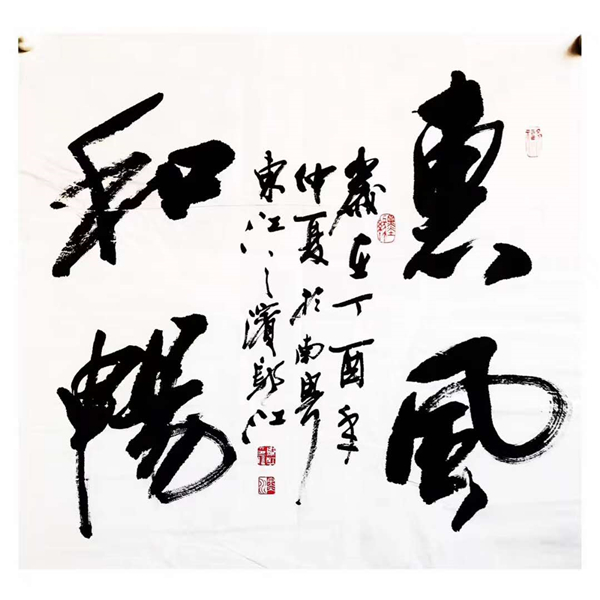 惠風
和暢
歲在丁酉年
仲夏於南粵
東江之濱
江